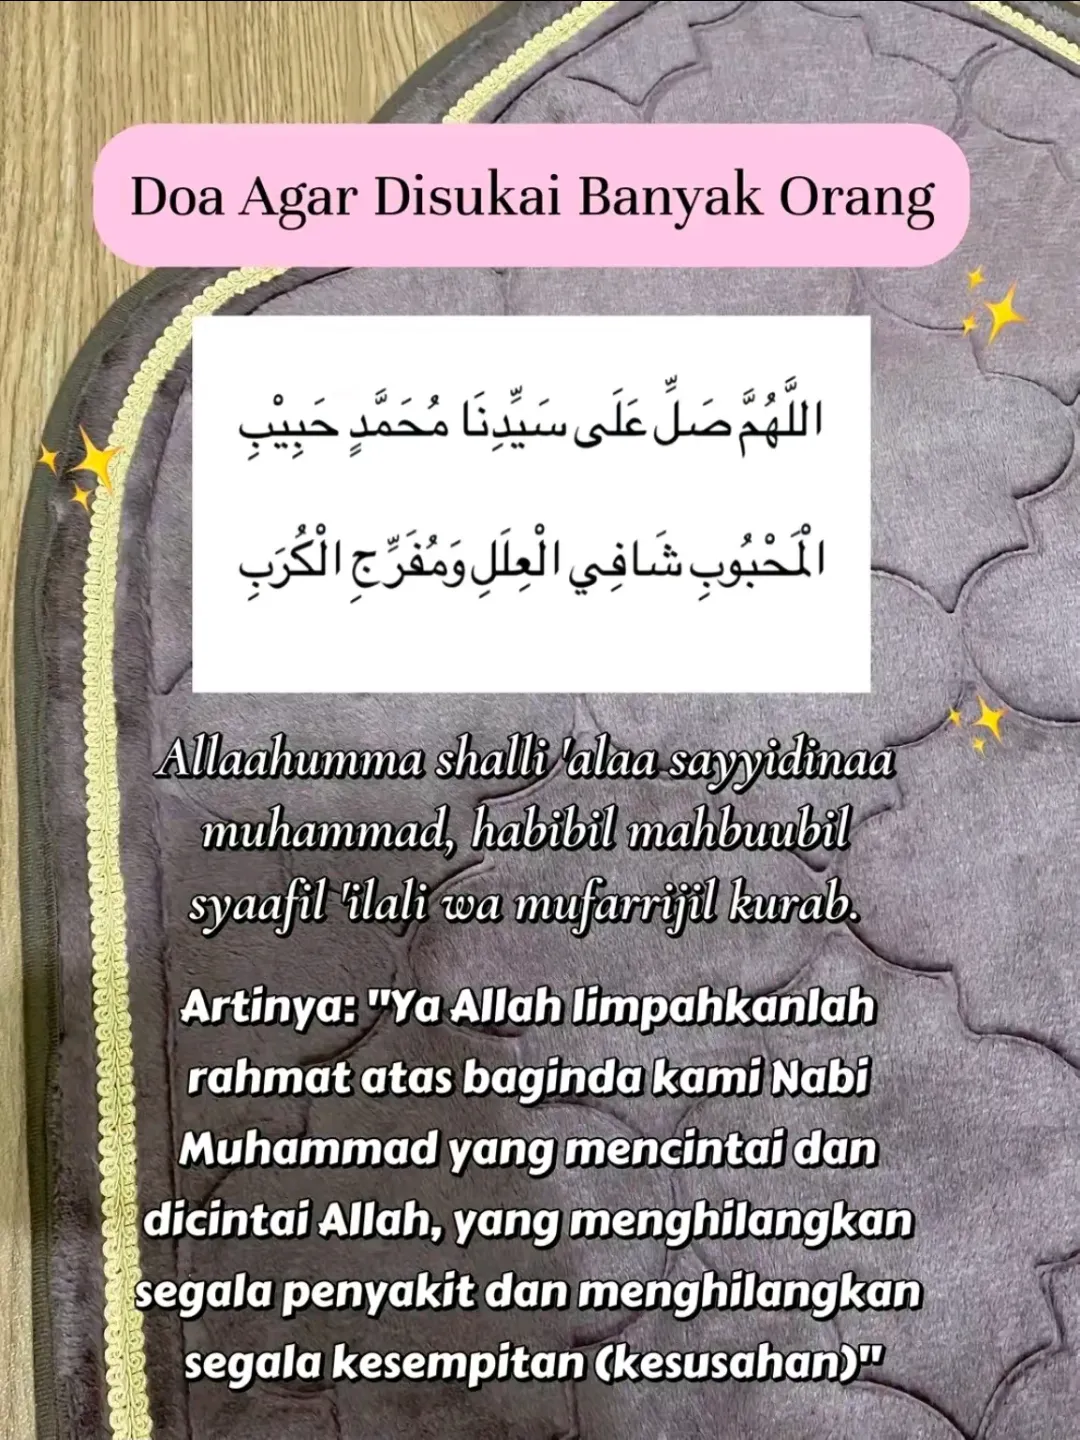 Doa Agar Disukai Banyak Orang
اللَّهُمَّ صَلِّ عَلَى سَيِّدِنَا مُحَمَّدٍ حَبِيْبِ
الْمَحْبُوبِ شَافِي الْعِلَلِ وَمُفَرِّجِ الْكُرَبِ
Allaahumma shalli 'alaa sayyidinaa
muhammad, habibil mahbuubil
syaafil 'ilali wa mufarrijil kurab.
Artinya: "Ya Allah limpahkanlah
rahmat atas baginda kami Nabi
Muhammad yang mencintai dan
dicintai Allah, yang menghilangkan
segala penyakit dan menghilangkan
segala kesempitan (kesusahan)"